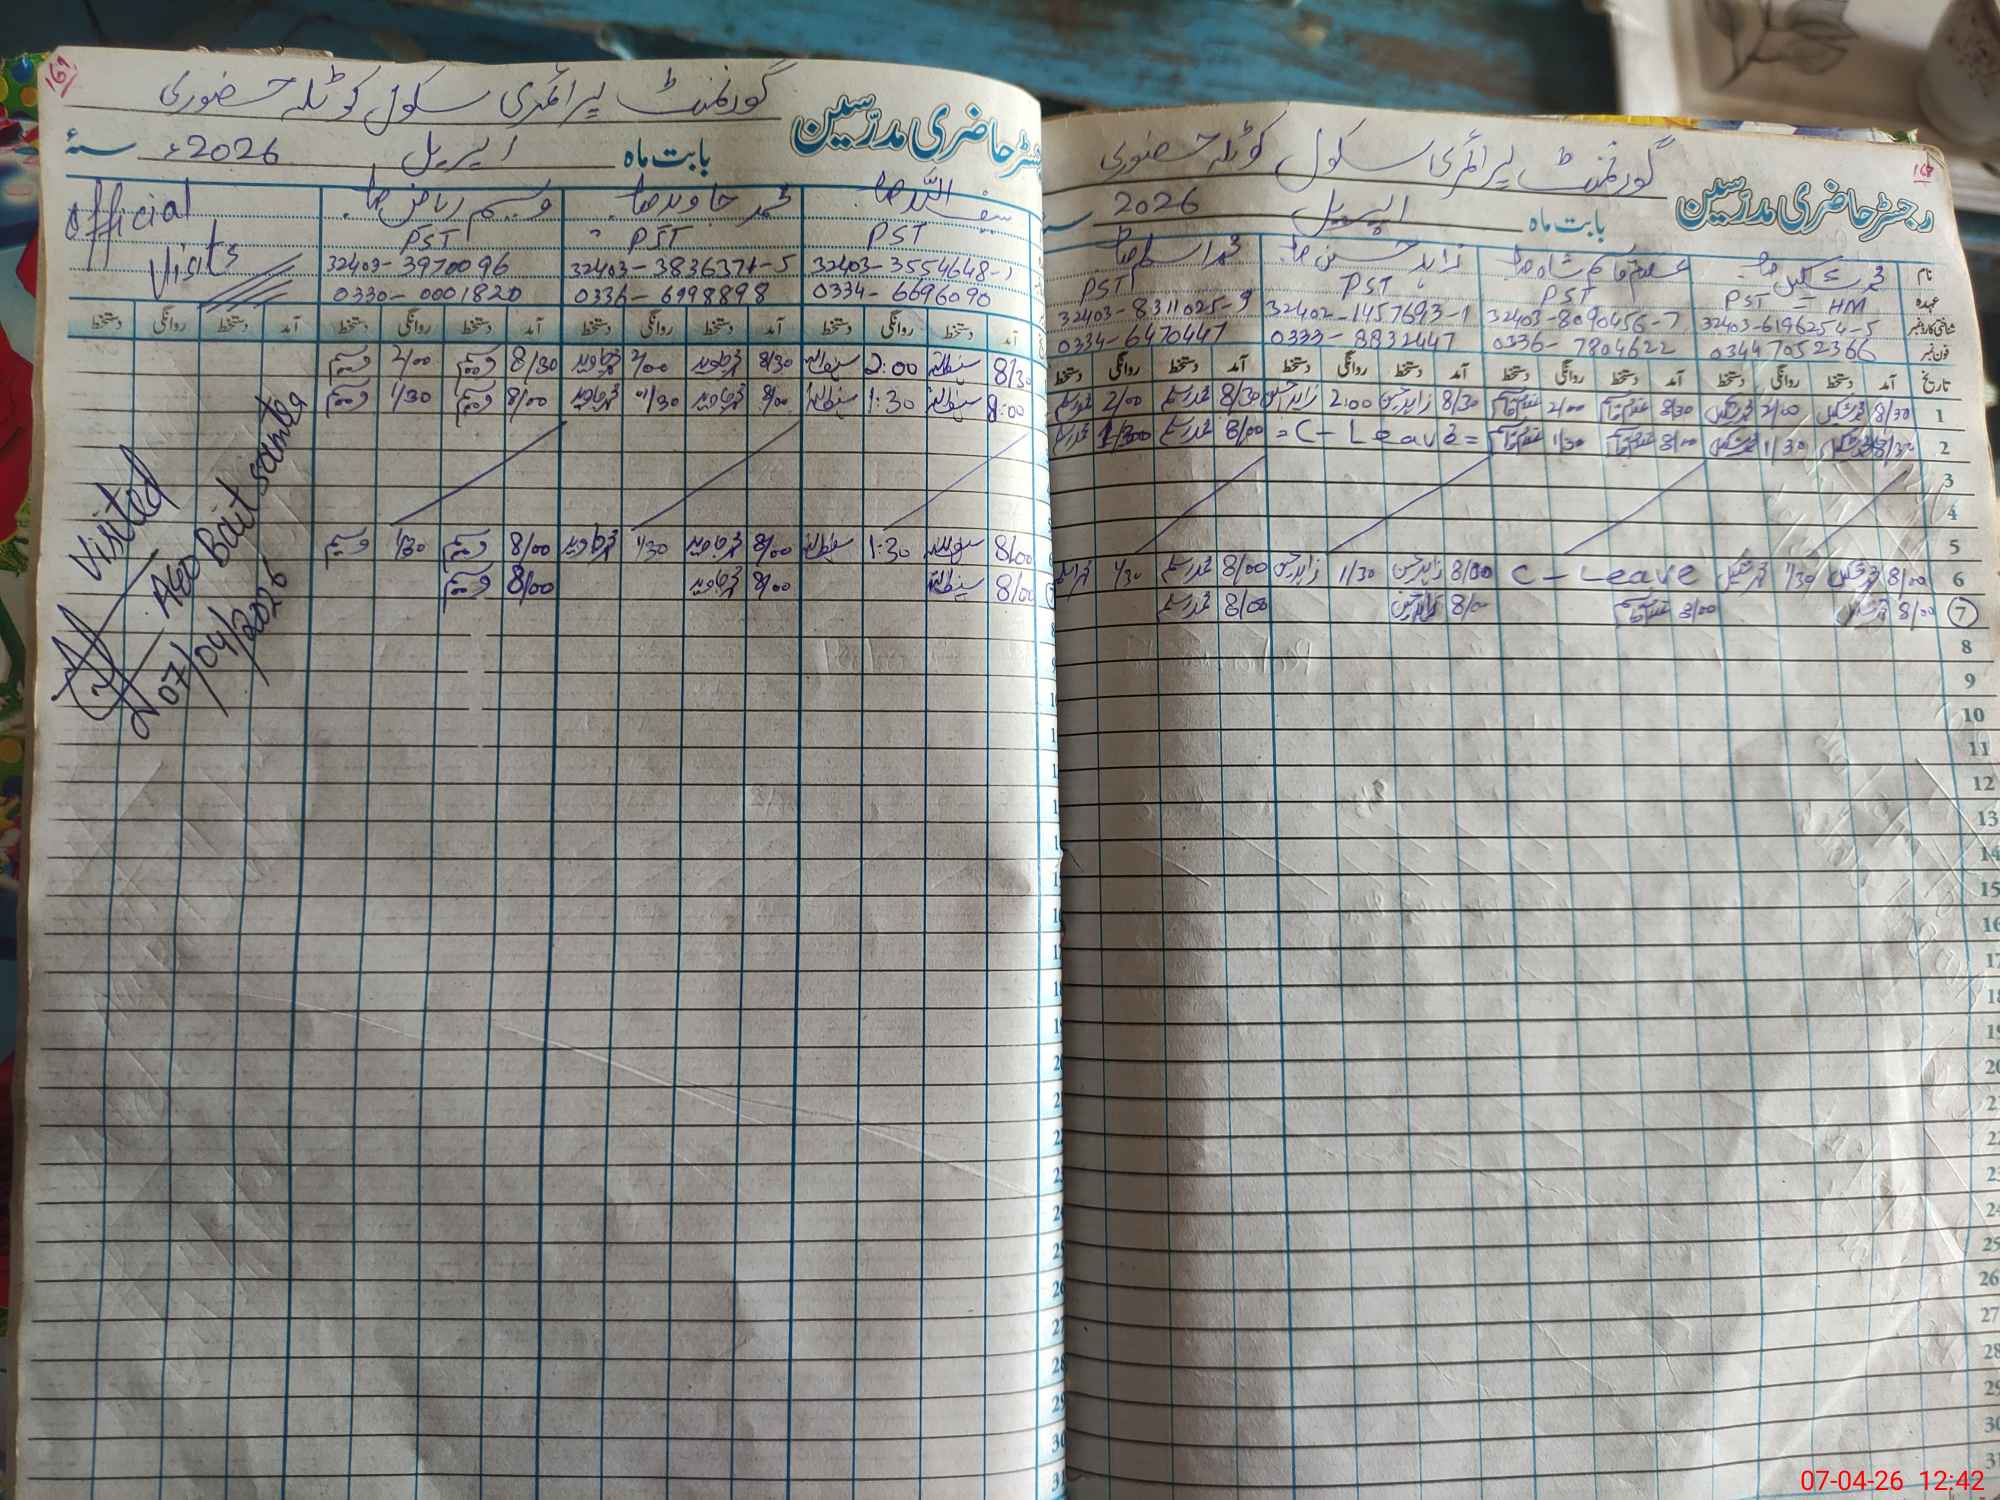 168
گورنمنٹ پرائمری سکول کوٹلہ حضوری
رجسٹر حاضری مدرسین
بابت ماہ اپریل 2026
نام
محمد شکیل صاحب
غلام قاسم شاہ صاحب
زاہد حسین صاحب
محمد اسلم صاحب
عہدہ
PST = HM
PST
PST
PST
شناختی کارڈ نمبر
32403-6196254-5
32403-8090456-7
32402-1457693-1
32403-8311025-9
فون نمبر
03447052366
0336-7804622
0333-8832447
0334-6470447
تاریخ آمد دستخط روانگی دستخط آمد دستخط روانگی دستخط آمد دستخط روانگی دستخط آمد دستخط روانگی دستخط
1 8/30 محمد شکیل 2/00 محمد شکیل 8/30 2/00 8/30 زاہد حسین 2:00 زاہد حسین 8/30 محمد اسلم 2/00 محمد اسلم
2 8/30 محمد شکیل 1/30 محمد شکیل 8/00 1/30 = C - Leave = 8/00 محمد اسلم 1/30 محمد اسلم
3
4
5
6 8/00 محمد شکیل 1/30 محمد شکیل C - Leave 8/00 زاہد حسین 1/30 زاہد حسین 8/00 محمد اسلم 1/30 محمد اسلم
7 8/00 8/00 8/00 زاہد حسین 8/00 محمد اسلم
8
9
10
11
12
13
14
15
16
17
18
19
20
21
22
23
24
25
26
27
28
29
30
31
161
گورنمنٹ پرائمری سکول کوٹلہ حضوری
رجسٹر حاضری مدرسین
بابت ماہ اپریل 2026ء سنہ
سیف اللہ صاحب
محمد جاوید صاحب
وسیم ریاض صاحب
Official
Visits
PST
PST
PST
32403-3554648-1
32403-3836371-5
32403-3970096
0334-6696090
0336-6998898
0330-0001820
آمد دستخط روانگی دستخط آمد دستخط روانگی دستخط آمد دستخط روانگی دستخط آمد دستخط روانگی دستخط
8/30 سیف اللہ 2:00 سیف اللہ 8/30 محمد جاوید 2/00 محمد جاوید 8/30 وسیم 2/00 وسیم
8:00 سیف اللہ 1:30 سیف اللہ 8/00 محمد جاوید 1/30 محمد جاوید 8/00 وسیم 1/30 وسیم
8/00 سیف اللہ 1:30 سیف اللہ 8/00 محمد جاوید 1/30 محمد جاوید 8/00 وسیم 1/30 وسیم
8/00 سیف اللہ 8/00 محمد جاوید 8/00 وسیم
Visited
AEO Bait sounta
07/04/2026
07-04-26 12:42